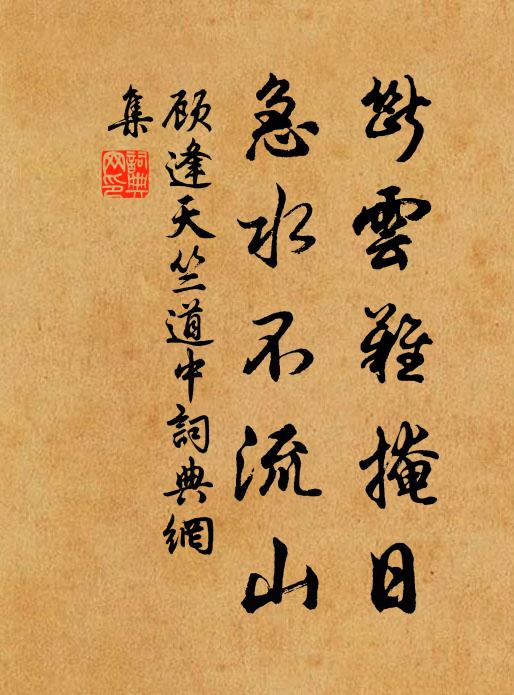 断雲難掩日
急水不流山
顾逢天竺道中詞典網
集
詞典
网印